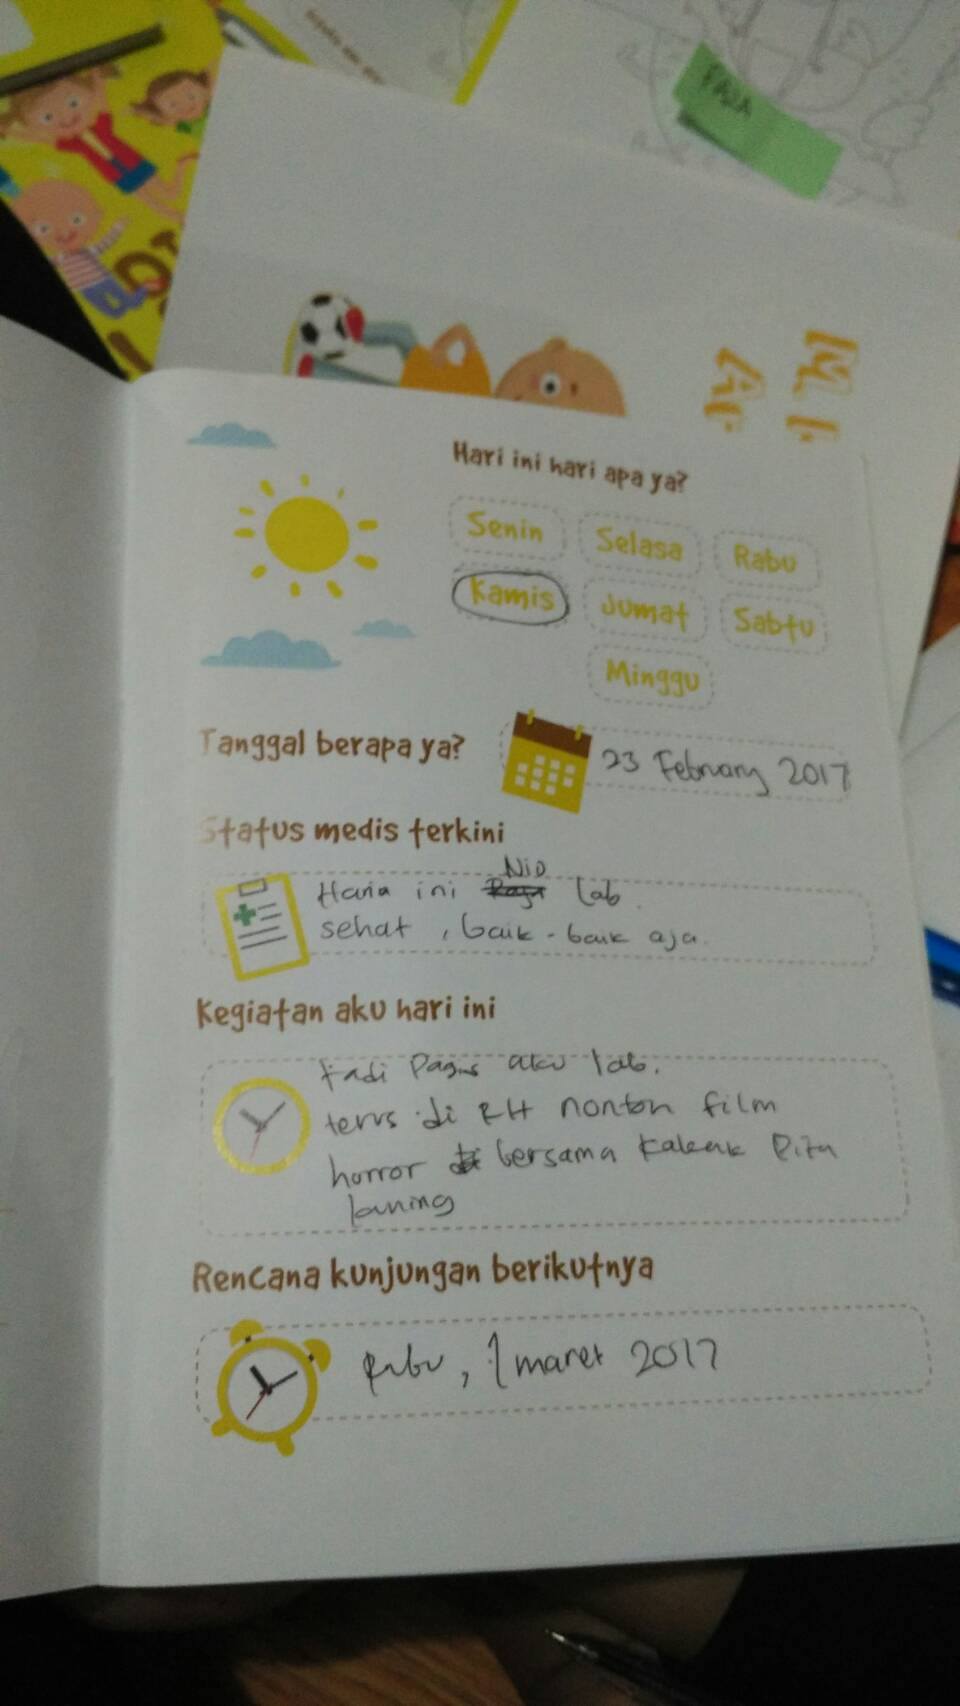 Hari ini hari apa ya?
Senin Selasa Rabu
Kamis Jumat Sabtu
Minggu
Tanggal berapa ya?
23 February 2017
Status medis terkini
Nio
Haria ini lab.
sehat, baik-baik aja.
Kegiatan aku hari ini
tadi pagi aku lab.
terus di RH nonton film
horror bersama kakak
Rencana kunjungan berikutnya
Rabu, 1 maret 2017